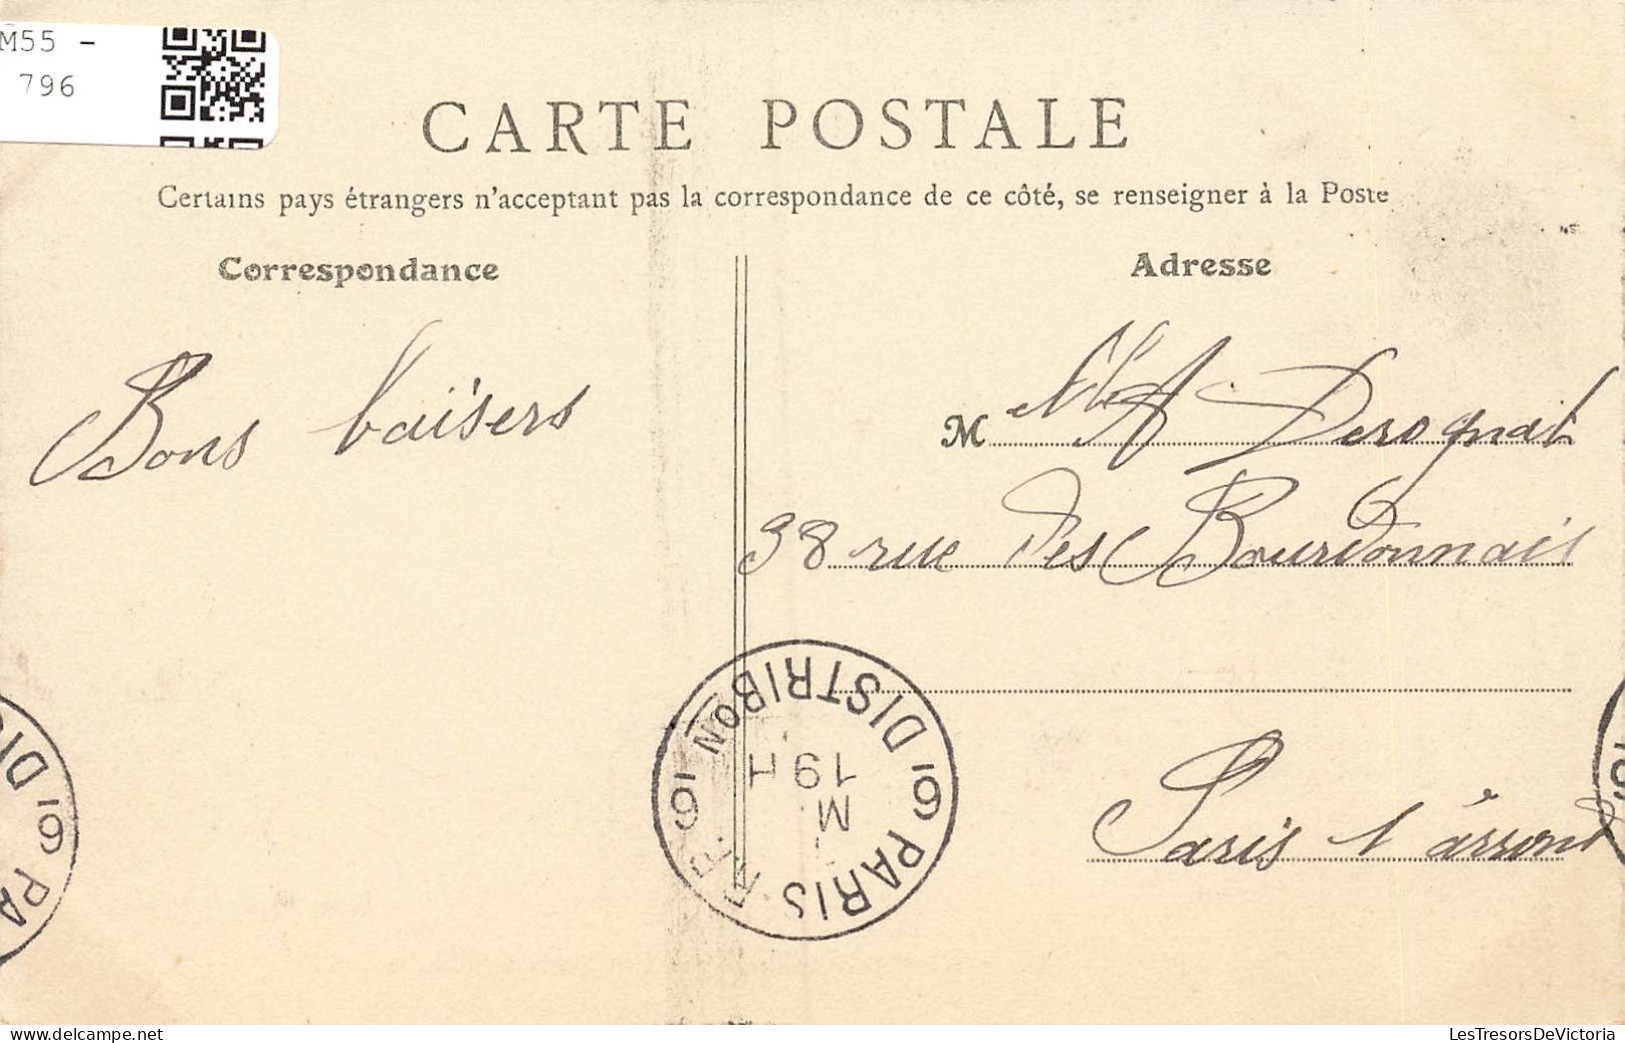 M55 -
796
CARTE POSTALE
Certains pays étrangers n'acceptant pas la correspondance de ce côté, se renseigner à la Poste
Correspondance
Adresse
Bons baisers
M Mle A Derognat
38 rue des Bourdonnais
Paris 1 arront
16 PARIS 16 DISTRIBON
19H
M
16 DIS
PA
16
LesTresorsDeVictoria.com